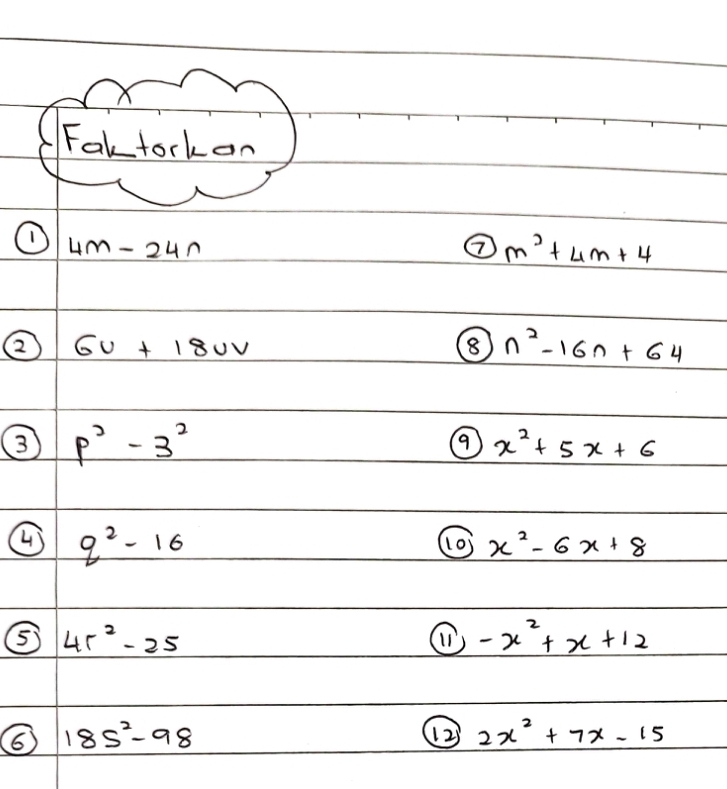 Faktorkan
① 4m - 24n
② 6u + 18uv
③ p² - 3²
④ q² - 16
⑤ 4r² - 25
⑥ 18s² - 98
⑦ m² + 4m + 4
⑧ n² - 16n + 64
⑨ x² + 5x + 6
⑩ x² - 6x + 8
⑪ -x² + x + 12
⑫ 2x² + 7x - 15